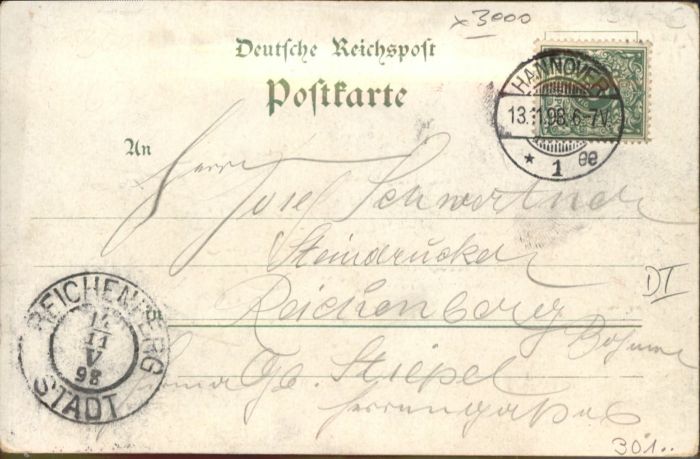 x 3000
Deutsche Reichspost
Postkarte
HANNOVER
13.11.98.6-7V.
* 1 ee
An
Herrn
Josef Schwertner
Steindrucker
DI
Reichenberg
Böhmen
REICHENBERG
14
11
V
98
STADT
Firma Gb. Stiepel
Herrengasse
301..